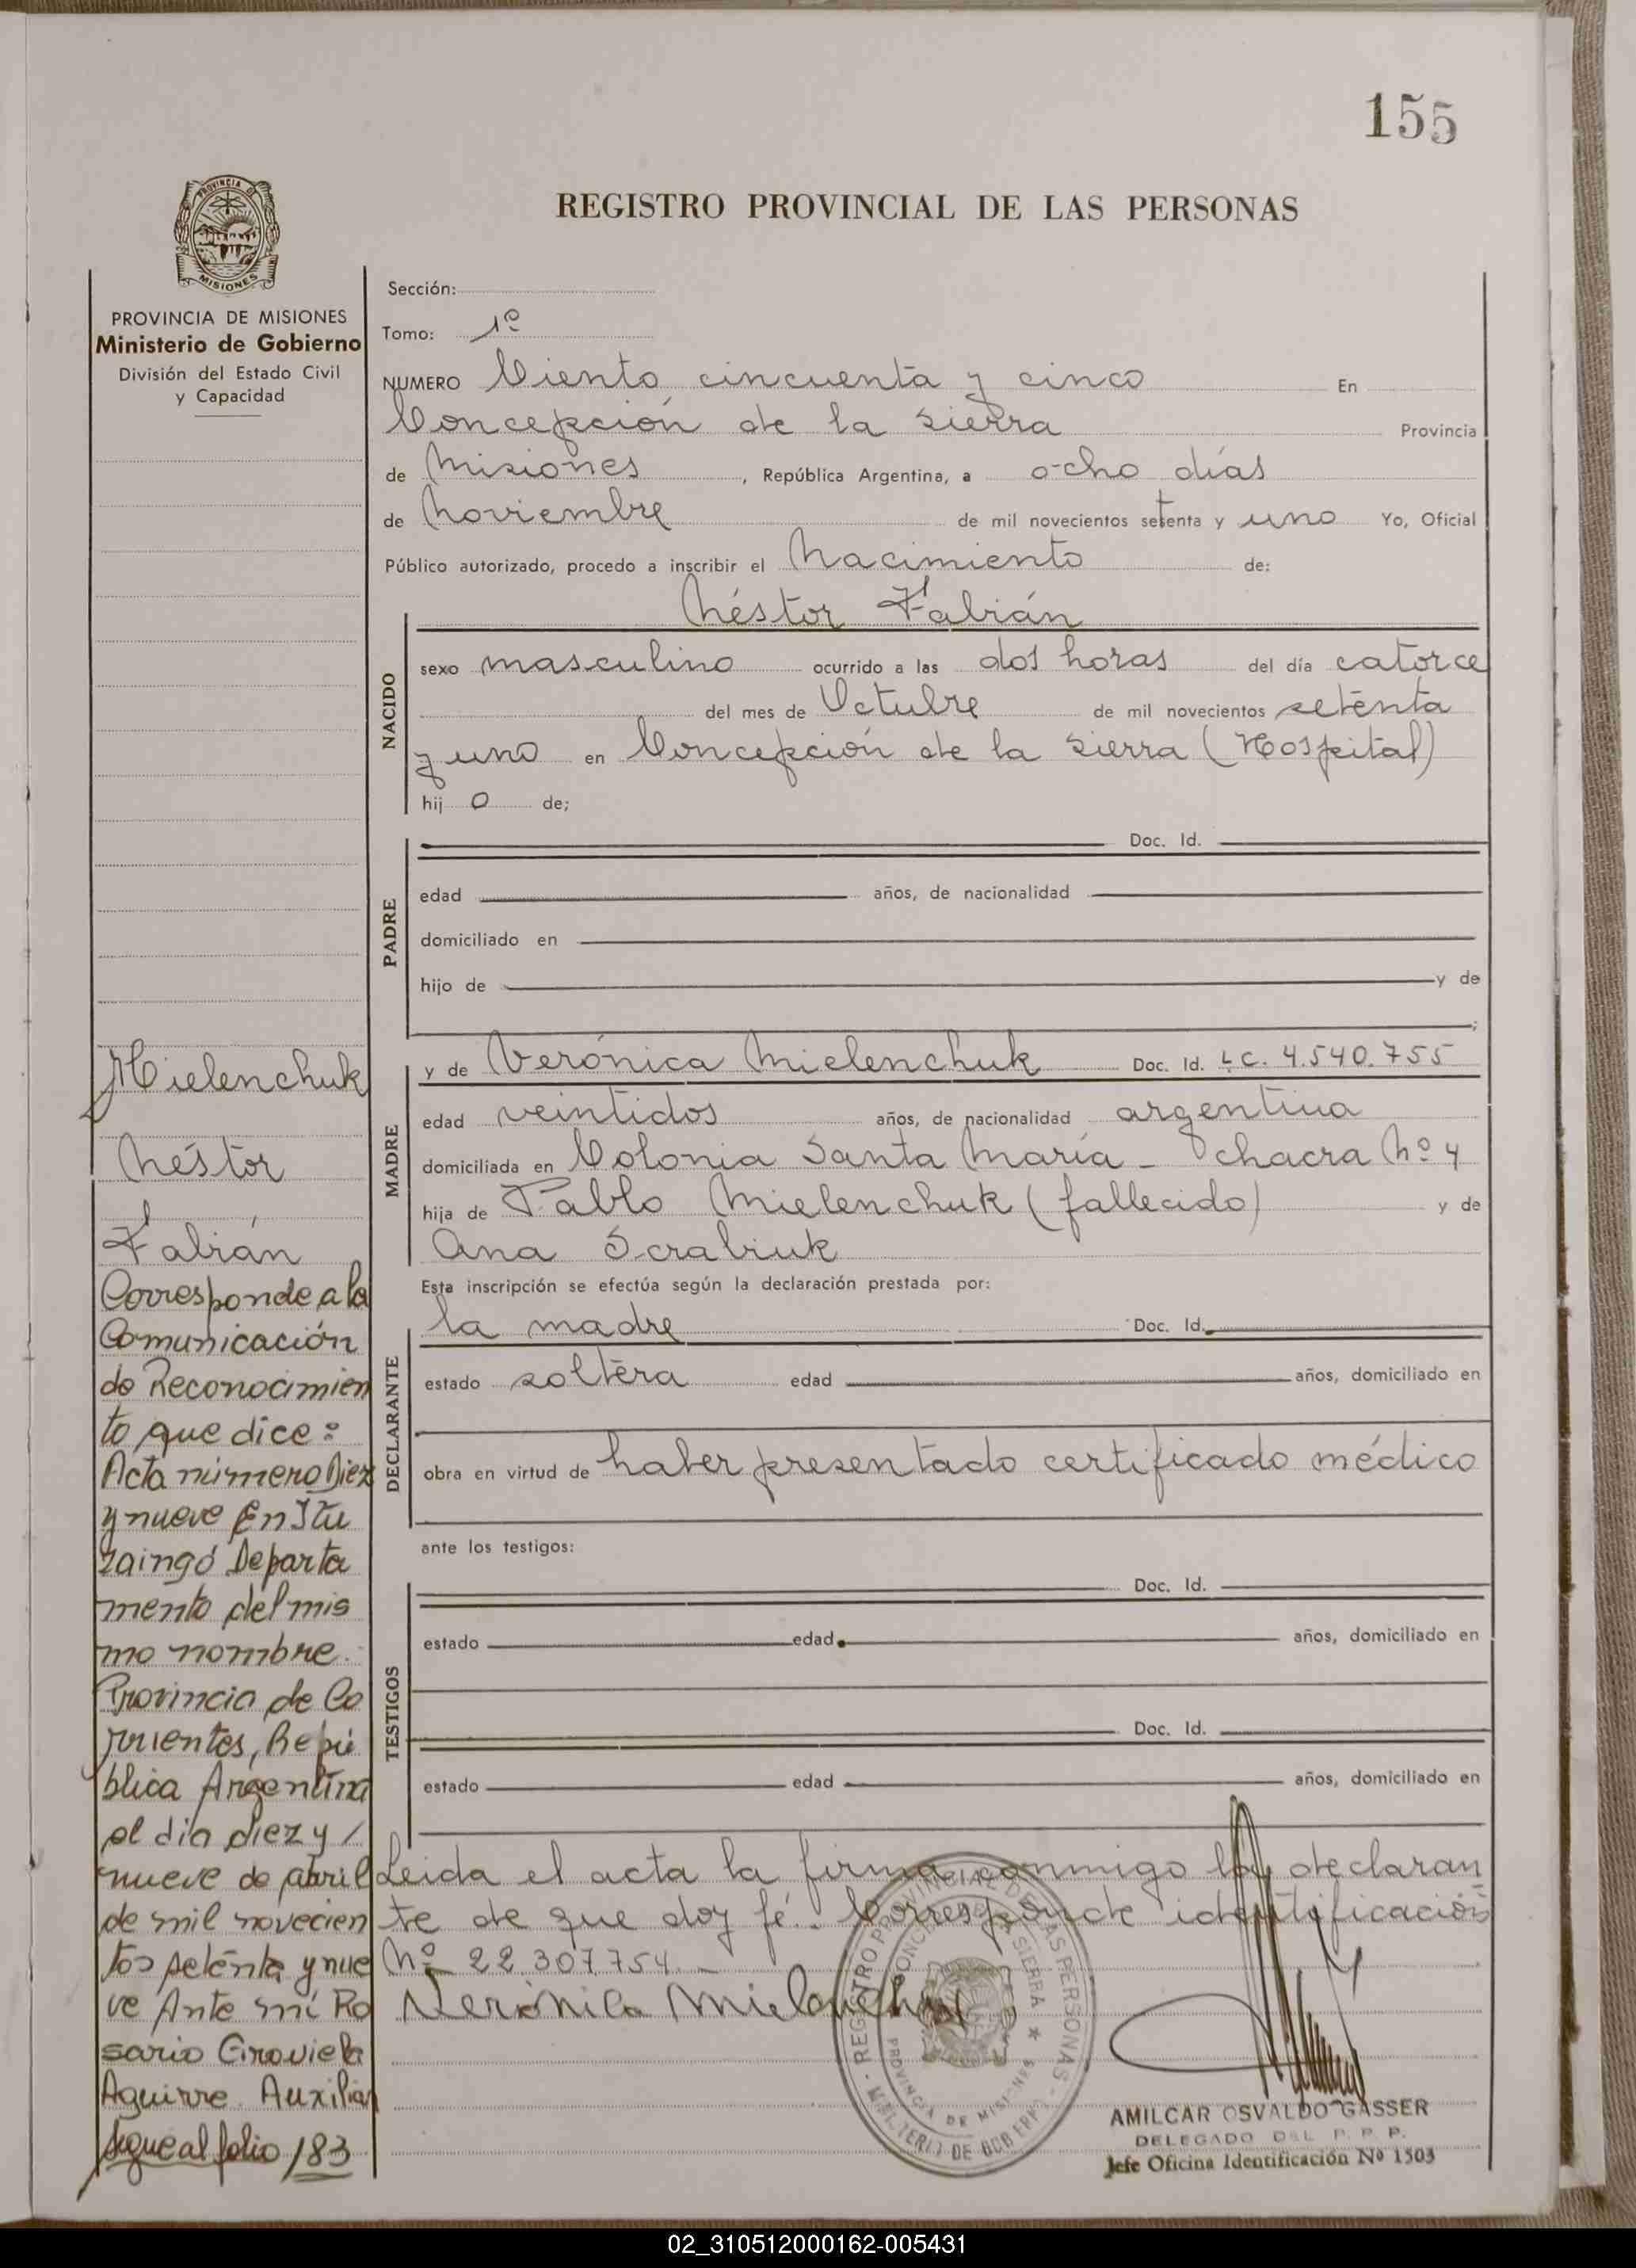 155
REGISTRO PROVINCIAL DE LAS PERSONAS
PROVINCIA DE MISIONES
PROVINCIA DE MISIONES
Ministerio de Gobierno
División del Estado Civil
y Capacidad
Mielenchuk
Néstor
Fabián
Corresponde a la
Comunicación
de Reconocimien
to que dice:
Acta número Diez
y nueve En Itu
zaingó Departa
mento del mis
mo nombre.
Provincia de Co
rrientes, Repú
blica Argentina
el día diez y /
nueve de abril
de mil novecien
tos setenta y nue
ve Ante mí Ro
sario Giroviela
Aguirre Auxiliar
Sigue al folio 183
Sección:
Tomo: 1º
NUMERO Ciento cincuenta y cinco En
Concepción de la Sierra Provincia
de Misiones, República Argentina, a ocho días
de Noviembre de mil novecientos setenta y uno Yo, Oficial
Público autorizado, procedo a inscribir el Nacimiento de:
NACIDO
Néstor Fabián
sexo masculino ocurrido a las dos horas del día catorce
del mes de Octubre de mil novecientos setenta
y uno en Concepción de la Sierra (Hospital)
hij o de;
PADRE
Doc. Id.
edad años, de nacionalidad
domiciliado en
hijo de y de
;
MADRE
y de Verónica Mielenchuk Doc. Id. L.C. 4.540.755
edad veintidos años, de nacionalidad argentina
domiciliada en Colonia Santa María - chacra Nº 4
hija de Pablo Mielenchuk (fallecido) y de
Ana Scrabiuk
Esta inscripción se efectúa según la declaración prestada por:
DECLARANTE
la madre Doc. Id.
estado soltera edad años, domiciliado en
obra en virtud de haber presentado certificado médico
ante los testigos:
TESTIGOS
Doc. Id.
estado edad años, domiciliado en
Doc. Id.
estado edad años, domiciliado en
Leida el acta la firma conmigo la declaran
te de que doy fé.- Corresponde identificación
Nº 22.307.754.-
Verónica Mielenchuk
REGISTRO PROVINCIAL DE LAS PERSONAS - MINISTERIO DE GOBIERNO -
CONCEPCION DE LA SIERRA * PROVINCIA DE MISIONES
AMILCAR OSVALDO GASSER
DELEGADO DEL R. P. P.
Jefe Oficina Identificación Nº 1503
02_310512000162-005431